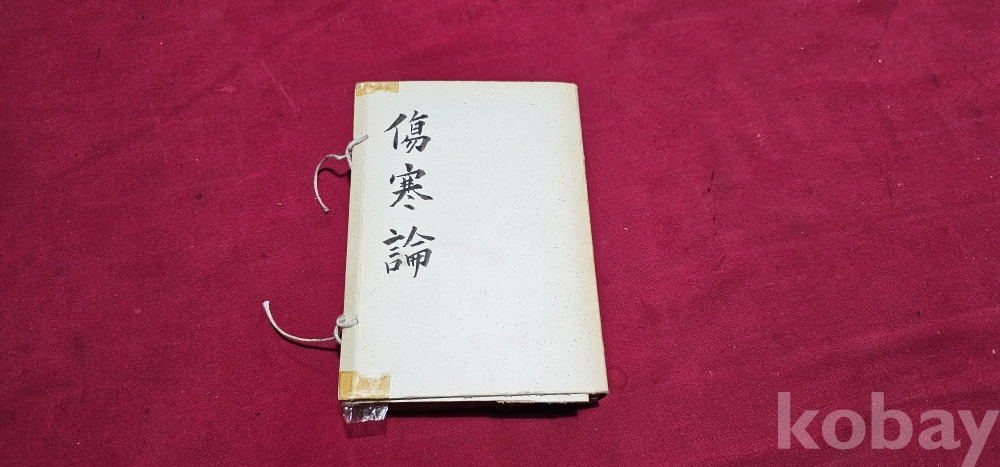 傷寒論
kobay